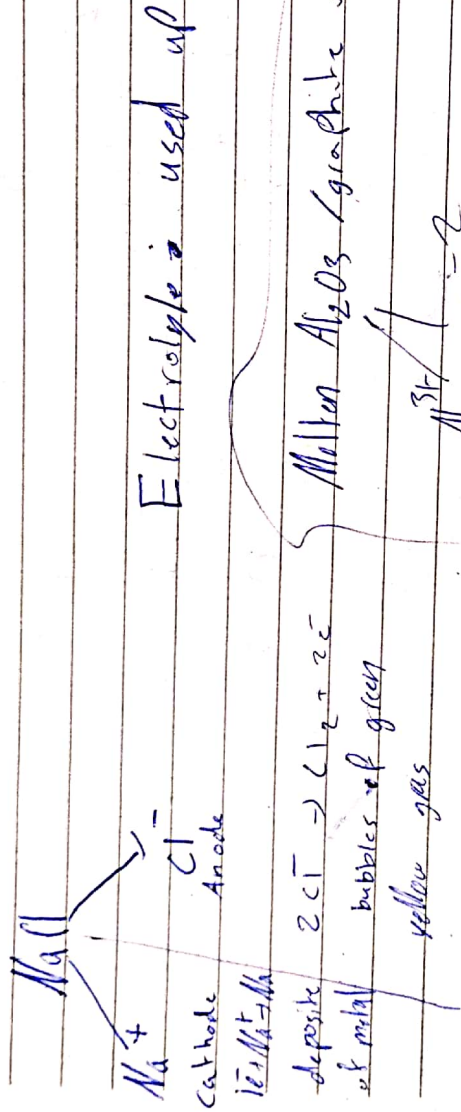 NaCl
Na+ Cl-
Cathode Anode
1e-+Na+→Na
deposite 2Cl- → Cl2 + 2e-
of metal bubbles of green
yellow gas
Electrolyte: used up
Molten Al2O3 / graphite
3+ -2